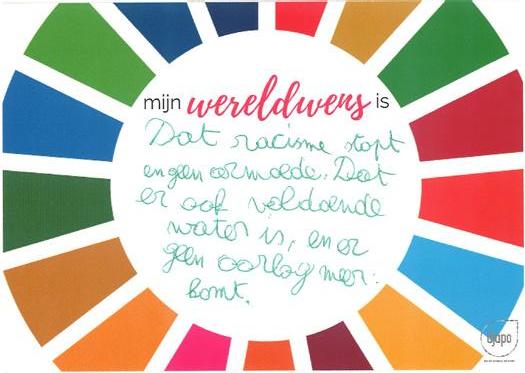 mijn wereldwens is
Dat racisme stopt
en geen armoede. Dat
er ook voldoende
water is, en er
geen oorlog meer
komt.
djapo